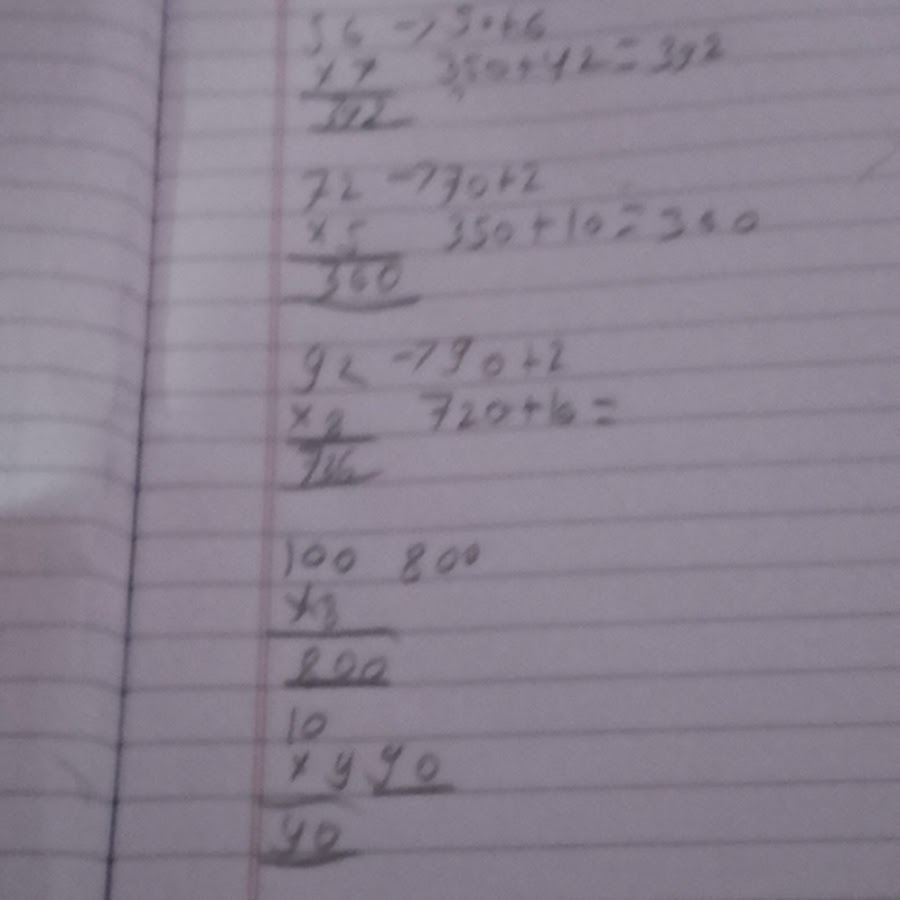 56 → 50+6
×7 350+42=392
392
72 → 70+2
×5 350+10=360
360
92 → 90+2
×8 720+16=
736
100 800
×8
800
10
×4 40
40